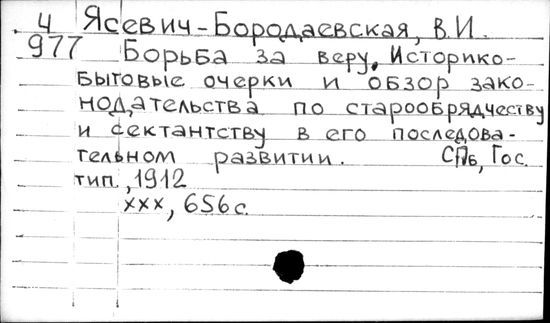 4 Ясевич-Бородаевская, В.И.
977 Борьба за веру. Историко-
бытовые очерки и обзор зако-
нодательства по старообрядчеству
и сектантству в его последова-
тельном развитии. СПб, Гос.
тип., 1912
xxx, 656 с.